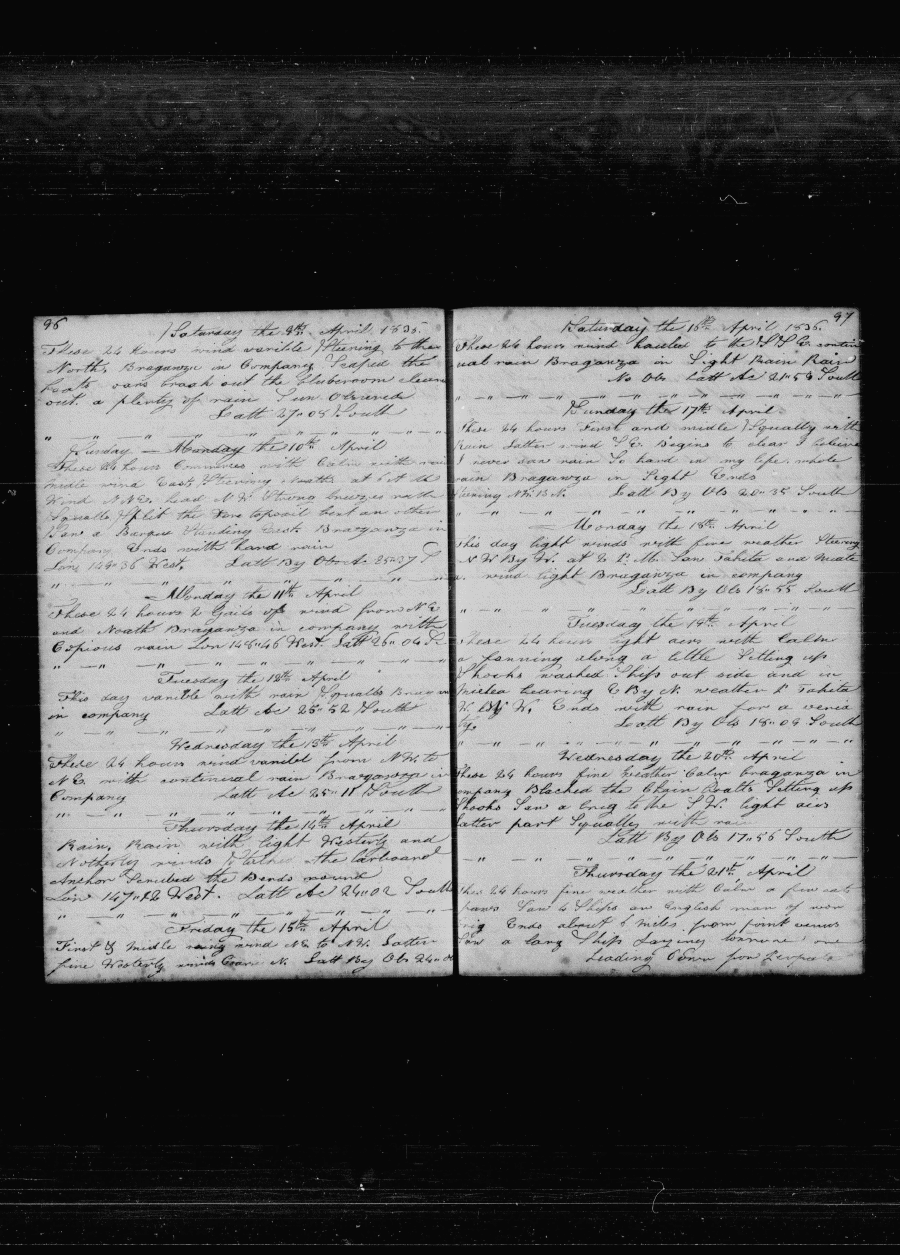 96
Saturday the 9th April 1836.
These 24 hours wind varible Steering to the
North, Braganza in Company Scraped the
boats oars brook out the bluberroom cleaned
out. a plenty of rain Sun Obscured
Latt 27"08 South
Sunday — Monday the 10th April
These 24 hours Commences with Calm with rain
middle wind East Steering North at
Wind N.N.E. head N.W. Strong breezes with
Squalls Split the Fore topsail bent an other
Saw a Barque Standing East. Braganza in
Company Ends with hard rain
Lon 148"36 West. Latt By Obs 25"37 S
Monday the 11th April
These 24 hours 2 Gails of wind from N E
and North Braganza in company with
Copious rain Lon 148"46 West. Latt 26"04 S
Tuesday the 12th April
This day varible with rain Squalls
in company Latt Ac 25"52 South
Wednesday the 13th April
These 24 hours wind from N.W. to
N.E. with contineual rain Braganza in
Company Latt Ac 25"11 South
Thursday the 14th April
Rain, Rain, with light Westerly and
Notherly winds the larboard
Anchor Scrubed the Bends round
Lon 147"12 West. Latt Ac 24"02 South
Friday the 15th April
First & middle wind NE to N.W. Latter
fine Westerly winds N. Latt By Obs 24"
97
Saturday the 16th April 1836.
These 24 hours wind hauled to the S.S.E. contin
ual rain Braganza in Sight Rain Rain
No Obs Latt Ac 21"53 South
Sunday the 17th April
These 24 hours First and middle Squally with
Rain. Latter wind S.E. Begins to clear I believe
I never saw rain So hard in my life. whole
rain Braganza in Sight Ends
Steering N.W.B.N. Latt By Obs 20"35 South
Monday the 18th April
This day light winds with fine weather Steering
N W By W. at 2 P.M. Saw Tahita and
wind light Braganza in company
Latt By Obs 18"55 South
Tuesday the 19th April
These 24 hours light airs with Calm
a fanning along a little Setting up
Shooks washed Ships out side and in
bearing E By N. weather P Tahita
W. By W. Ends with rain for a
Latt By Obs 18"08 South
Wednesday the 20th April
These 24 hours fine weather Calm braganza in
company Blacked the Chain boalts Setting up
Shooks Saw a brig to the S.W. light airs
latter part Squally with
Latt By Obs 17"56 South
Thursday the 21st April
These 24 hours fine weather with Calm a few cats
paws Saw 4 Ships an English man of wor
brig Ends about 6 miles from point venus
Saw a larg Ship Laying
Leading Down for